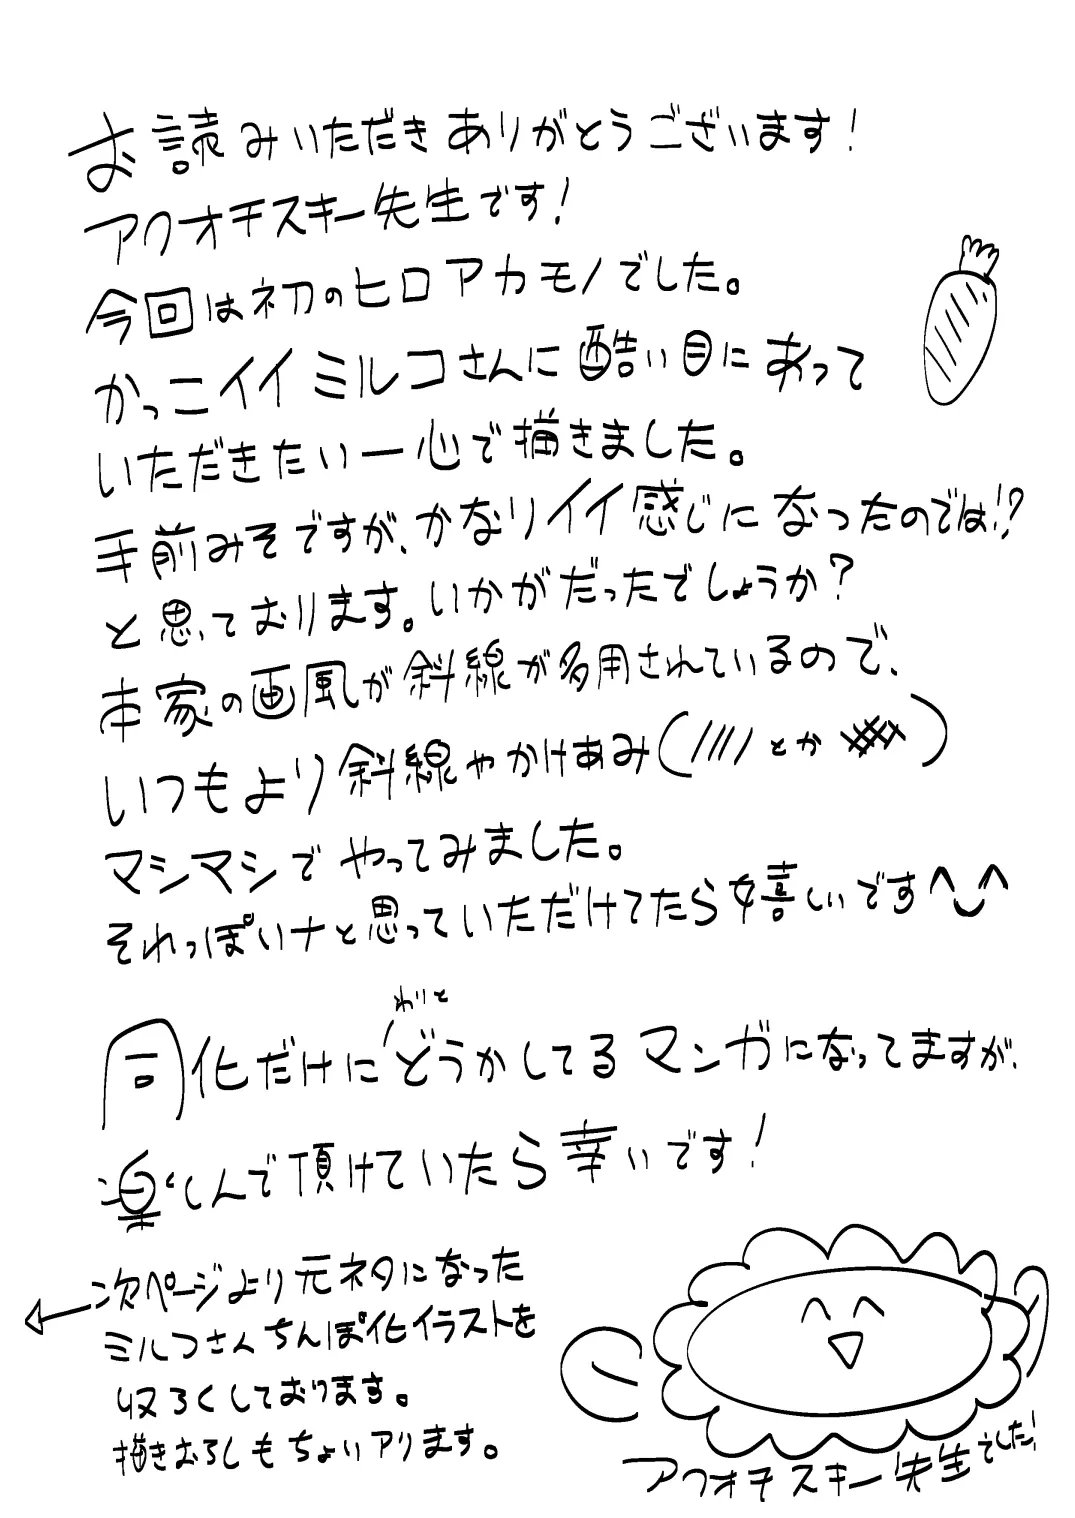 お読みいただきありがとうございます!
アクオチスキー先生です!
今回は初のヒロアカモノでした。
かっこイイミルコさんに酷い目にあって
いただきたい一心で描きました。
手前みそですが、かなりイイ感じになったのでは!?
と思っております。いかがだったでしょうか?
本家の画風が斜線が多用されているので、
いつもより斜線やかけあみ(////とか )
マシマシでやってみました。
それっぽいナと思っていただけてたら嬉しいです^‿^
わりと
同化だけにどうかしてるマンガになってますが、
楽しんで頂けていたら幸いです!
←次ページより元ネタになった
ミルコさんちんぽ化イラストを
収ろくしております。
描きおろしもちょいアリます。
アクオチスキー先生でした!